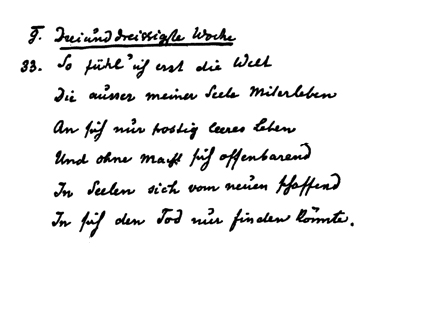 g. Dreiunddreissigste Woche
33. So fühl' ich erst die Welt
Die ausser meiner Seele Miterleben
An sich nur frostig leeres Leben
Und ohne Macht sich offenbarend
In Seelen sich von neuem schaffend
In sich den Tod nur finden könnte.